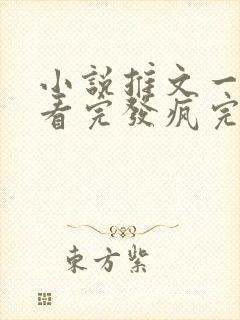 小說推文一
看完發瘋完
東方紫